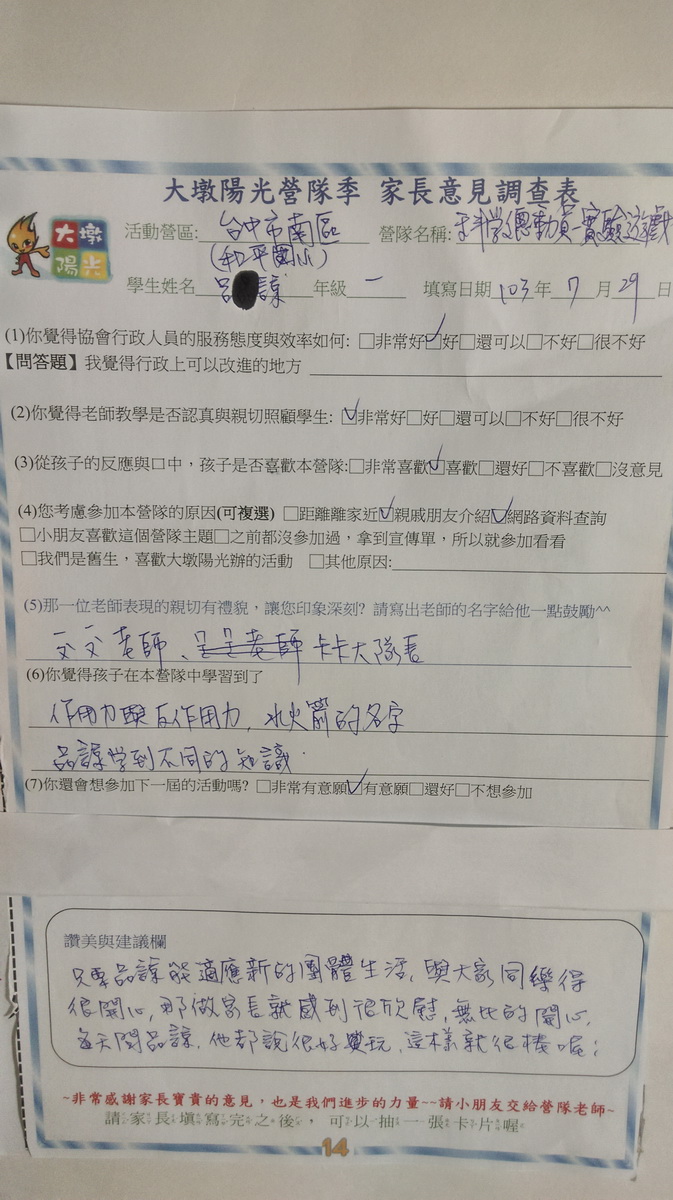 大墩陽光營隊季 家長意見調查表
大墩
陽光
活動營區:台中市南區
(和平國小)
營隊名稱:科學總動員-實驗遊戲
學生姓名 呂 諒 年級 一 填寫日期 103年 7 月 29 日
(1)你覺得協會行政人員的服務態度與效率如何: □非常好☑好□還可以□不好□很不好
【問答題】我覺得行政上可以改進的地方
(2)你覺得老師教學是否認真與親切照顧學生: ☑非常好□好□還可以□不好□很不好
(3)從孩子的反應與口中，孩子是否喜歡本營隊:□非常喜歡☑喜歡□還好□不喜歡□沒意見
(4)您考慮參加本營隊的原因(可複選) □距離離家近☑親戚朋友介紹☑網路資料查詢
□小朋友喜歡這個營隊主題□之前都沒參加過，拿到宣傳單，所以就參加看看
□我們是舊生，喜歡大墩陽光辦的活動 □其他原因:
(5)那一位老師表現的親切有禮貌，讓您印象深刻? 請寫出老師的名字給他一點鼓勵^^
文文老師、呈呈老師 卡卡大隊長
(6)你覺得孩子在本營隊中學習到了
作用力與反作用力, 水火箭的名字
品諒学到不同的知識.
(7)你還會想參加下一屆的活動嗎? □非常有意願☑有意願□還好□不想參加
讚美與建議欄
只要品諒能適應新的團體生活, 與大家同樂得
很開心, 那做家長就感到很欣慰, 無比的開心,
每天問品諒, 他都說很好玩, 這樣就很棒喔;
~非常感謝家長寶貴的意見，也是我們進步的力量~~請小朋友交給營隊老師~
請家長填寫完之後，可以抽一張卡片喔
14